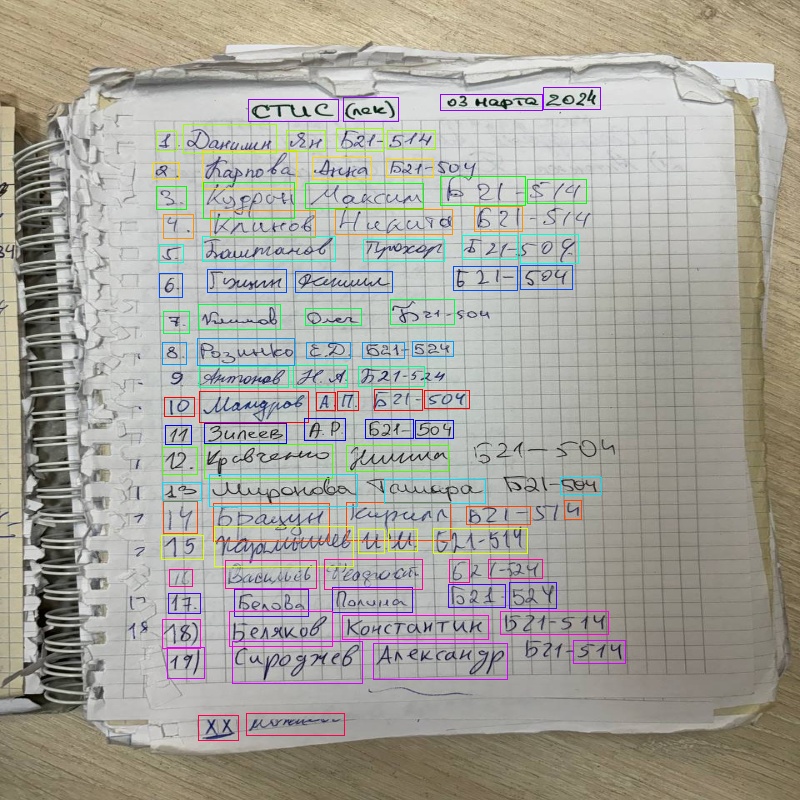 СТИС (лек) 03 марта 2024
1. Данилин Ян Б21-514
2. Карпова Анна Б21-504
3. Кудрон Максим Б21-514
4. Климов Никита Б21-514
5. Баштанов Прохор Б21-504
6. Гузин Даниил Б21-504
7. Климов Олег Б21-504
8. Розинко Е.Д. Б21-524
9 Антонов Н.А Б21-524
10 Мандров А П. Б21-504
11 Зилеев А.Р. Б21-504
12. Кравченко Никита Б21-504
13 Миронова Тамара Б21-504
14 Кирилл Б21-514
15 Кармышев И И Б21-514
Васильев Б21-524
17 17. Белова Полина Б21-524
18 18) Беляков Константин Б21-514
19) Сироджев Александр Б21-514
XX